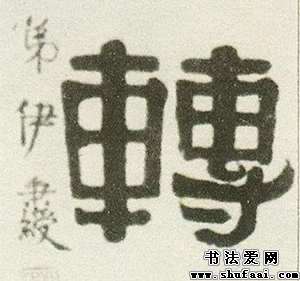 轉
弟伊秉綬
书法爱网
www.shufaai.com